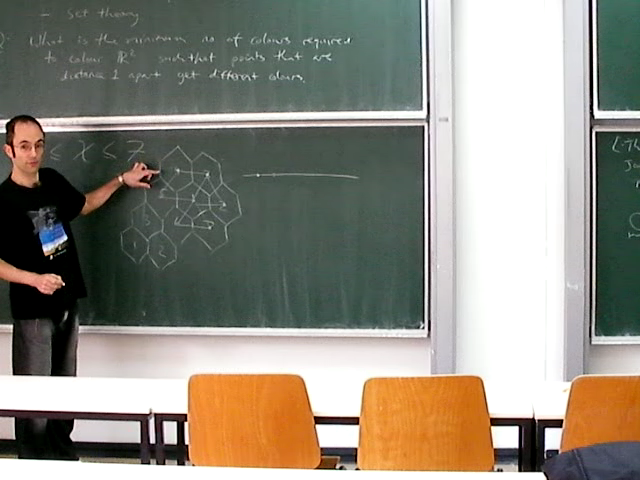 - set theory
What is the minimum no of colours required
to colour ℝ² such that points that are
distance 1 apart get different colours.
≤ χ ≤ 7
3
1 2